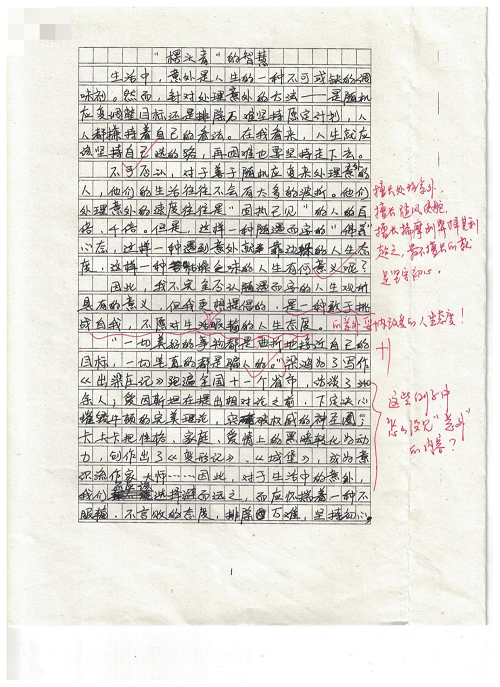 生活中，意外是人生的一种不可或缺的调
味剂。然而，针对处理意外的方法——是随机
应变调整目标还是排除万难坚持原定计划，人
人都揣着自己的看法。在我看来，人生就应
该坚持自己选的路，再困难也要坚持走下去。
不可否认，对于善于随机应变来处理意外的
人，他们的生活往往不会有太多的波折。他们
处理意外的速度往往是“固执己见”的人的百
倍、千倍。但是，这样一种随遇而安的“佛系”
心态，这样一种遇到意外就靠边的人生态
度，这样一种味的人生有何意义呢？
因此，我不完全否认随遇而安的人生观所
具有的意义，但我更明提倡的，是一种敢于挑
战自我，不愿对生活服输的人生态度。
的意外要的人生态度！
“一切美好的事物都是曲折地接近自己的
目标，一切笔直的都是骗人的。”梁鸿为了写作
《出梁庄记》跑遍全国十一个省市，访谈了
余人；爱因斯坦在提出相对论之前，下定决心
牛顿的完美理论，权威的神圣圈；
卡夫卡把性格、家庭、爱情上的黑暗转化为动
力，创作出了《变形记》、《城堡》，成为意
识流作家大师……因此，对于生活中的意外，
我们选择避而远之，而应怀揣着一种不
服输、不言败的态度，排除万难，坚持初心。
擅长处理意外，
是坚守初心。
这些例子中
怎么没见“意外”
的内容？
1